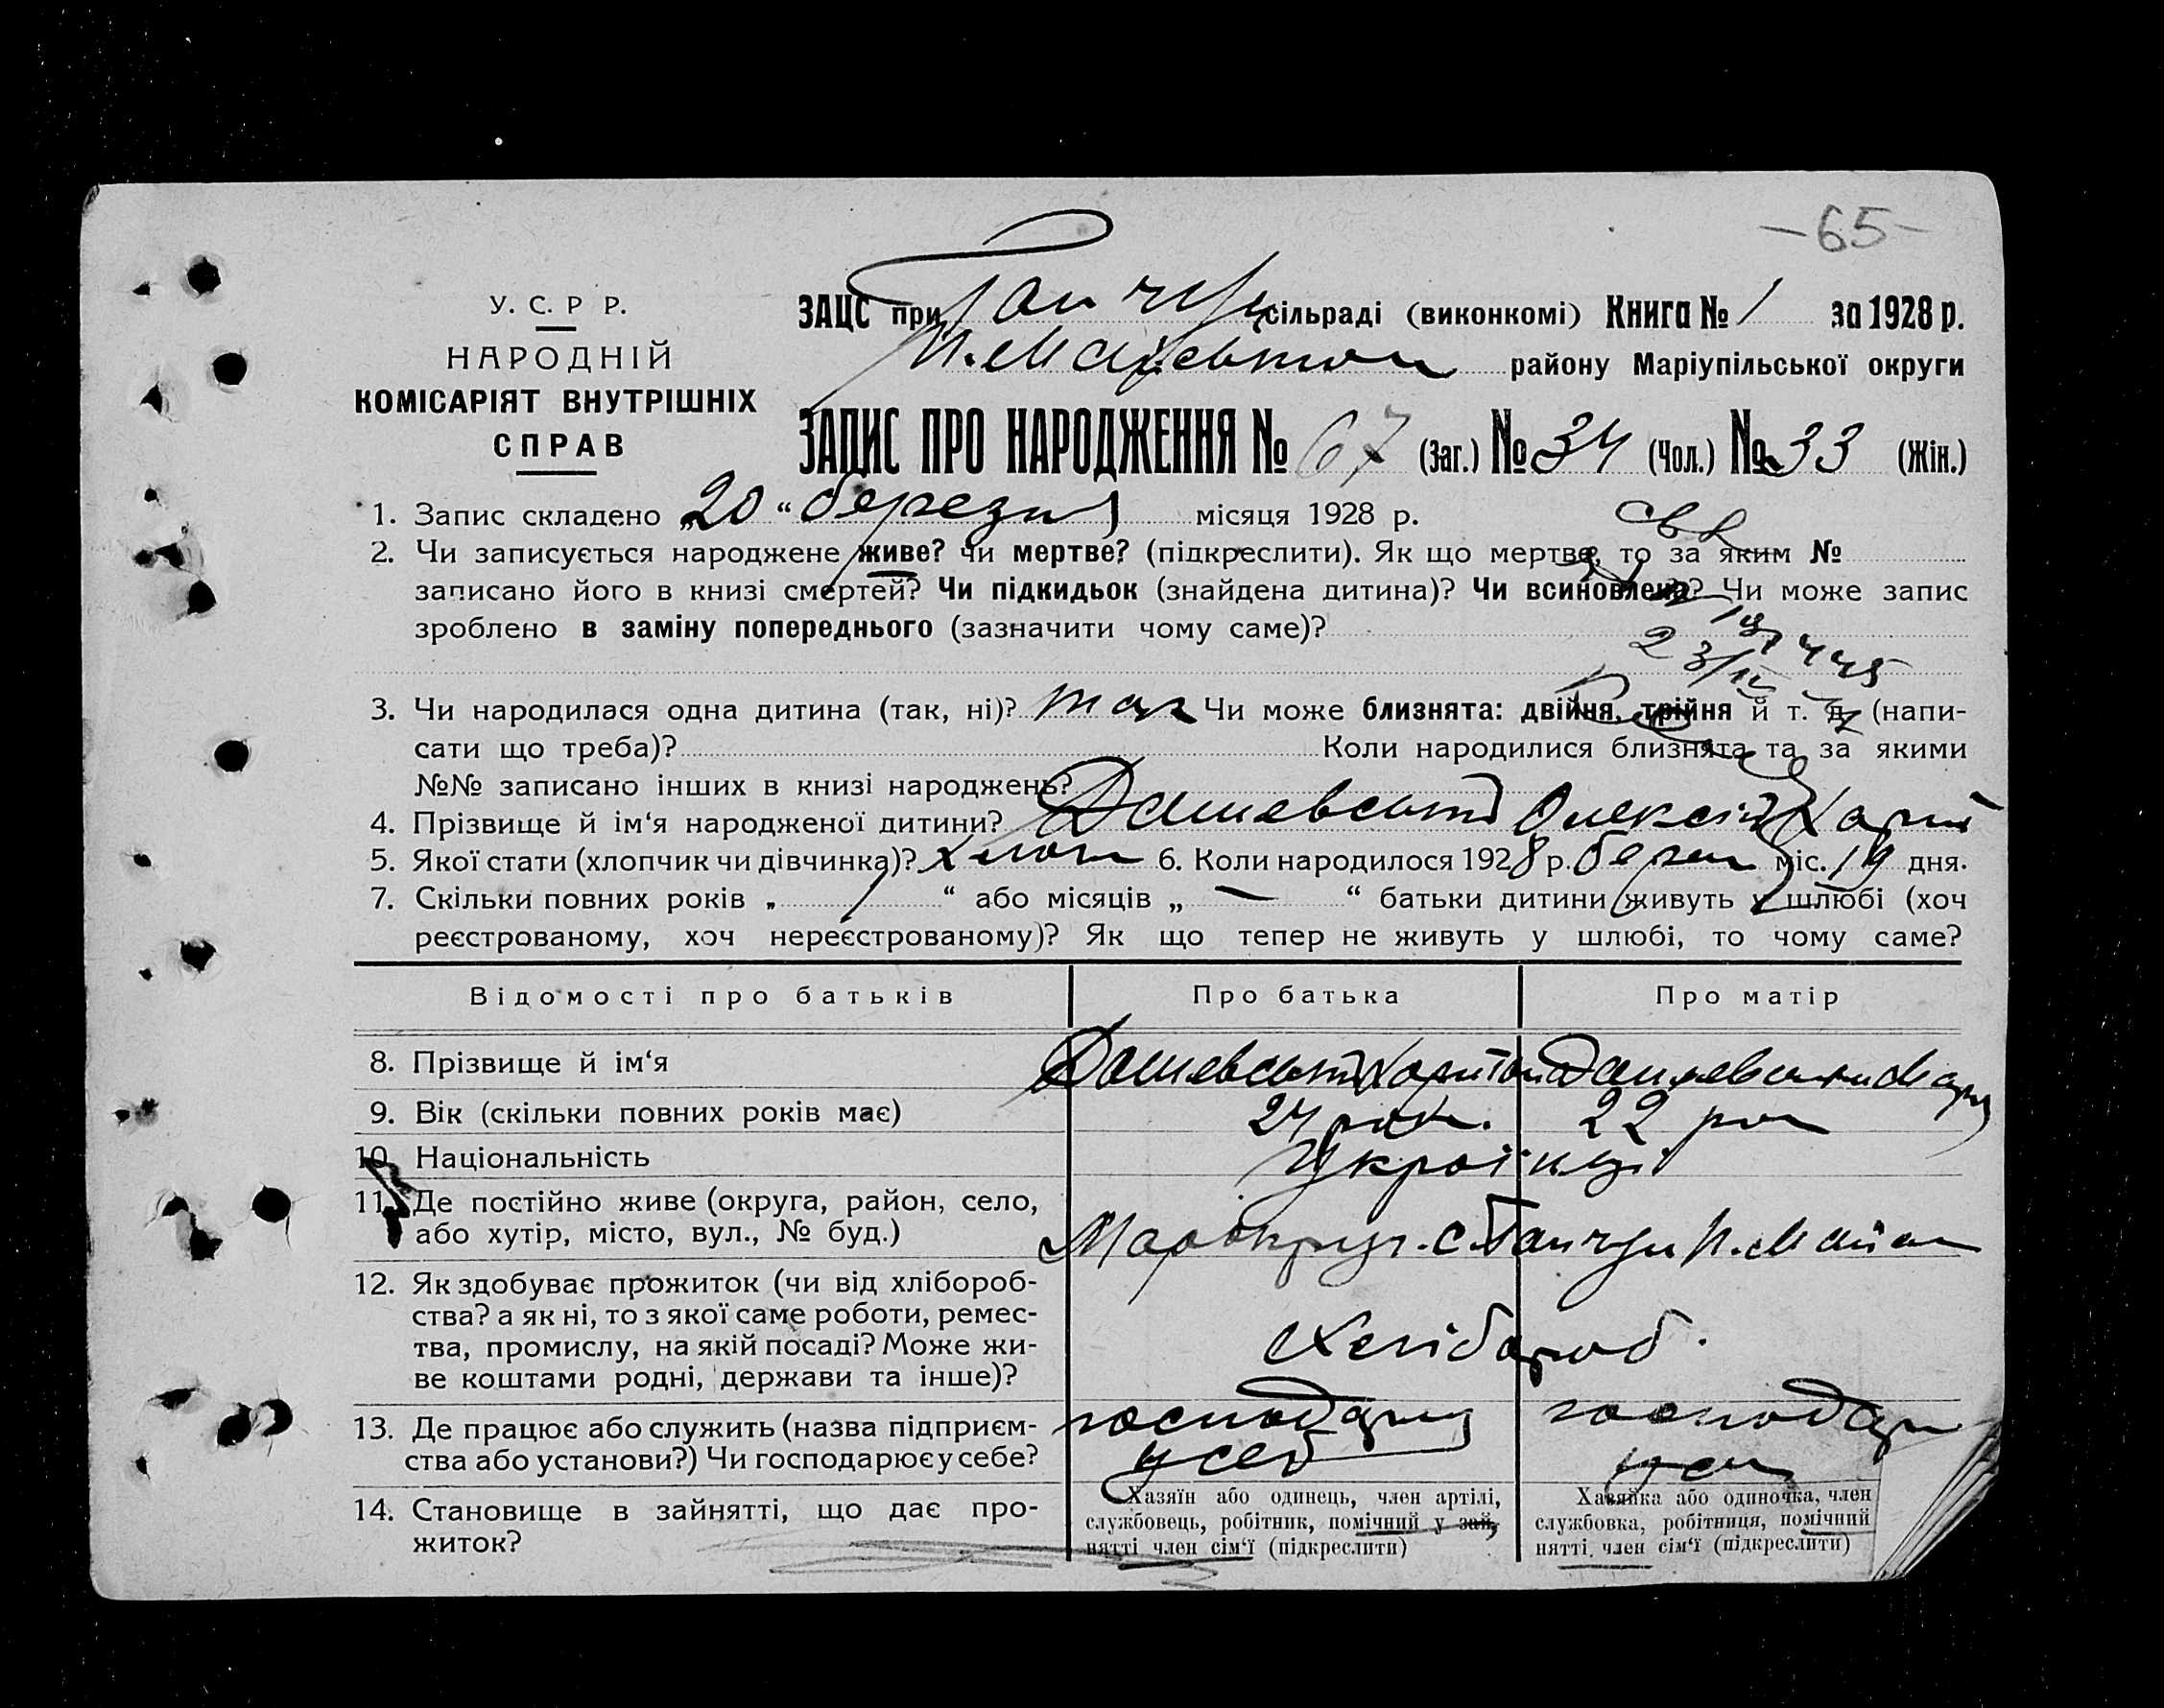 -65-
У. С. Р Р.
НАРОДНІЙ
КОМІСАРІЯТ ВНУТРІШНІХ
СПРАВ
ЗАЦС при сільраді (виконкомі) Книга № 1 за 1928 р.
району Маріупільської округи
ЗАПИС ПРО НАРОДЖЕННЯ № 67 (Заг.) № 34 (Чол.) № 33 (Жін.)
1. Запис складено „20“ березня місяця 1928 р.
2. Чи записується народжене живе? чи мертве? (підкреслити). Як що мертве, то за яким №
записано його в книзі смертей? Чи підкидьок (знайдена дитина)? Чи всиновлена? Чи може запис
зроблено в заміну попереднього (зазначити чому саме)?
3. Чи народилася одна дитина (так, ні)? так Чи може близнята: двійня, трійня й т. д. (напи-
сати що треба)? Коли народилися близнята та за якими
№№ записано інших в книзі народжень?
4. Прізвище й ім‘я народженої дитини? Дашевський Олексій Харит
5. Якої стати (хлопчик чи дівчинка)? хлоп 6. Коли народилося 1928 р. берез міс. 19 дня.
7. Скільки повних років „ 1 “ або місяців „ — “ батьки дитини живуть у шлюбі (хоч
реєстрованому, хоч нереєстрованому)? Як що тепер не живуть у шлюбі, то чому саме?
Відомості про батьків Про батька Про матір
8. Прізвище й ім‘я Дашевський Харитон Дашевська Мария
9. Вік (скільки повних років має) 24 рок. 22 рок
10. Національність Українці
11. Де постійно живе (округа, район, село,
або хутір, місто, вул., № буд.)
12. Як здобуває прожиток (чи від хлібороб-
ства? а як ні, то з якої саме роботи, ремес-
тва, промислу, на якій посаді? Може жи-
ве коштами родні, держави та інше)? Хлібороб.
13. Де працює або служить (назва підприєм- господарує господарю
ства або установи?) Чи господарює у себе? у себ у се
14. Становище в зайнятті, що дає про-
житок?
Хазяїн або одинець, член артілі,
службовець, робітник, помічний у зай,
нятті член сім‘ї (підкреслити)
Хазяйка або одиночка, член
службовка, робітниця, помічний
нятті, член сім‘ї (підкреслити)